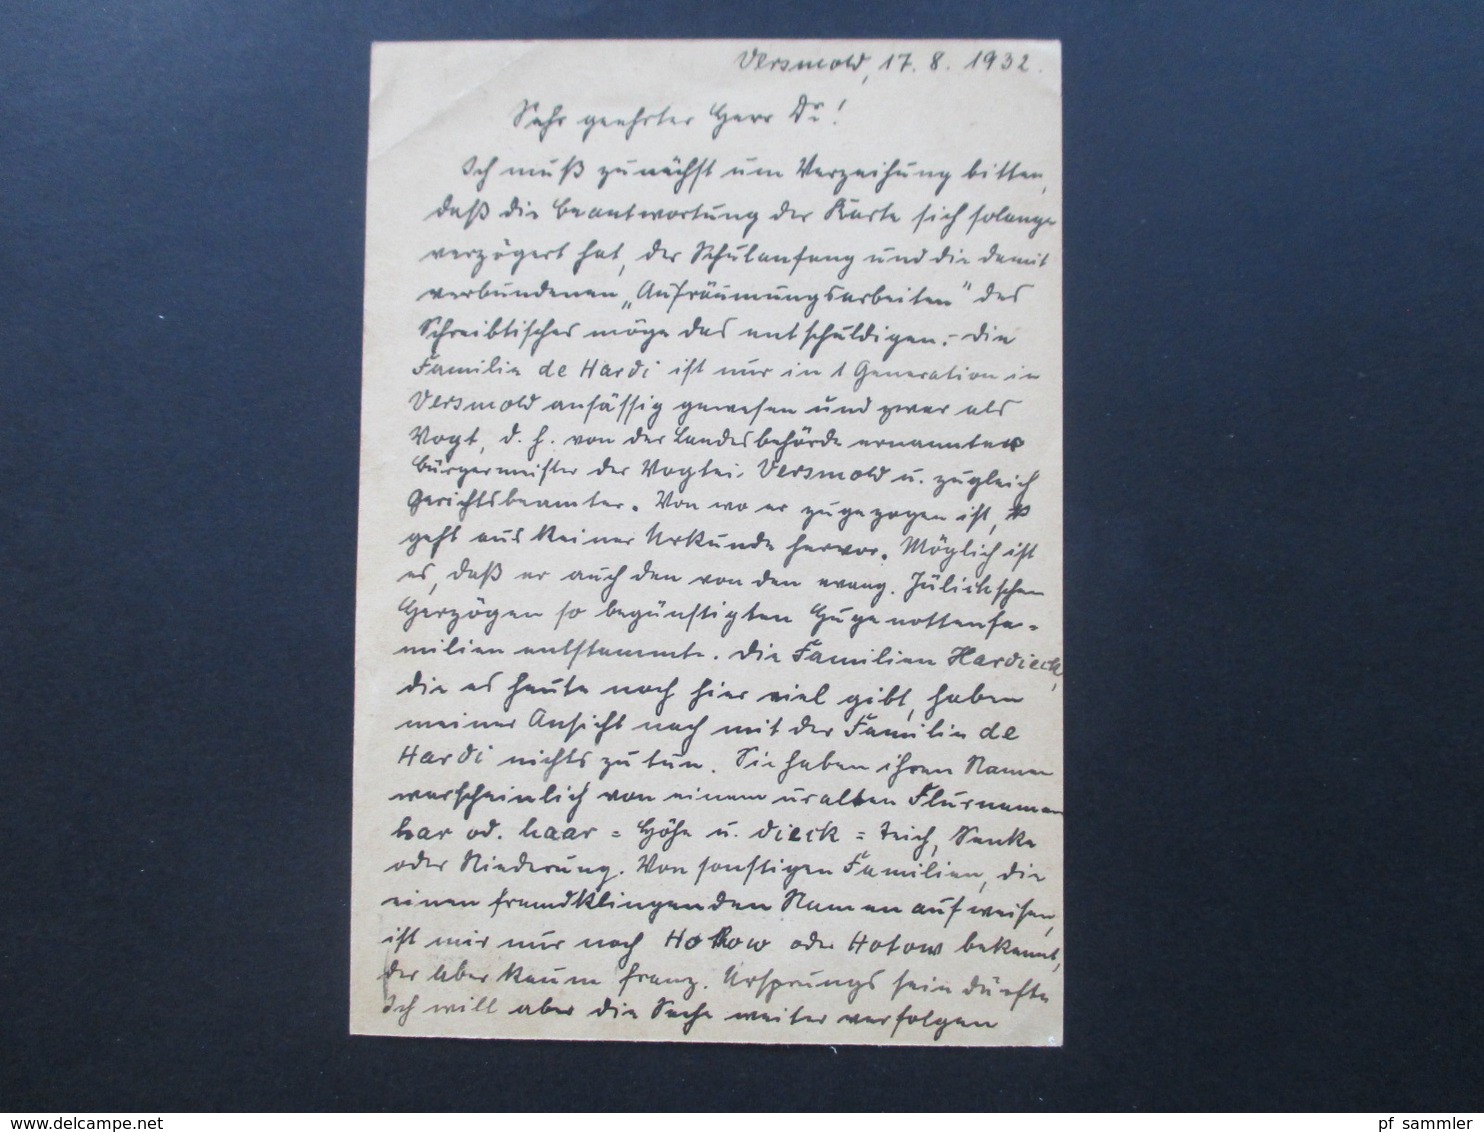 Versmold, 17. 8. 1932.
Sehr geehrter Herr Dr.!
Ich muß zunächst um Verzeihung bitten,
daß die Beantwortung der Karte sich solange
verzögert hat, der Schulanfang und die damit
verbundenen „Aufräumungsarbeiten" des
Schreibtisches möge das entschuldigen. - Die
Familie de Hardi ist nur in 1 Generation in
Versmold ansässig gewesen und zwar als
Vogt, d. h. von der Landesbehörde ernannter
Bürgermeister der Vogtei Versmold u. zugleich
Gerichtsbeamter. Von wo er zugezogen ist,
geht aus keiner Urkunde hervor. Möglich ist
es, daß er auch den von den evang. Jülichschen
Herzögen so begünstigten Hugenottenfa-
milien entstammte. Die Familien Hardieck,
die es heute noch hier viel gibt, haben
meiner Ansicht nach mit der Familie de
Hardi nichts zu tun. Sie haben ihren Namen
warscheinlich von einem uralten Flurnamen
har od. haar = Höhe u. dieck = Teich, Senke
oder Niederung. Von sonstigen Familien, die
einen fremdklingenden Namen aufweisen,
ist mir nur noch oder Hotow bekannt,
der aber kaum franz. Ursprungs sein dürfte
Ich will aber die Sache weiter verfolgen
pf_sammler